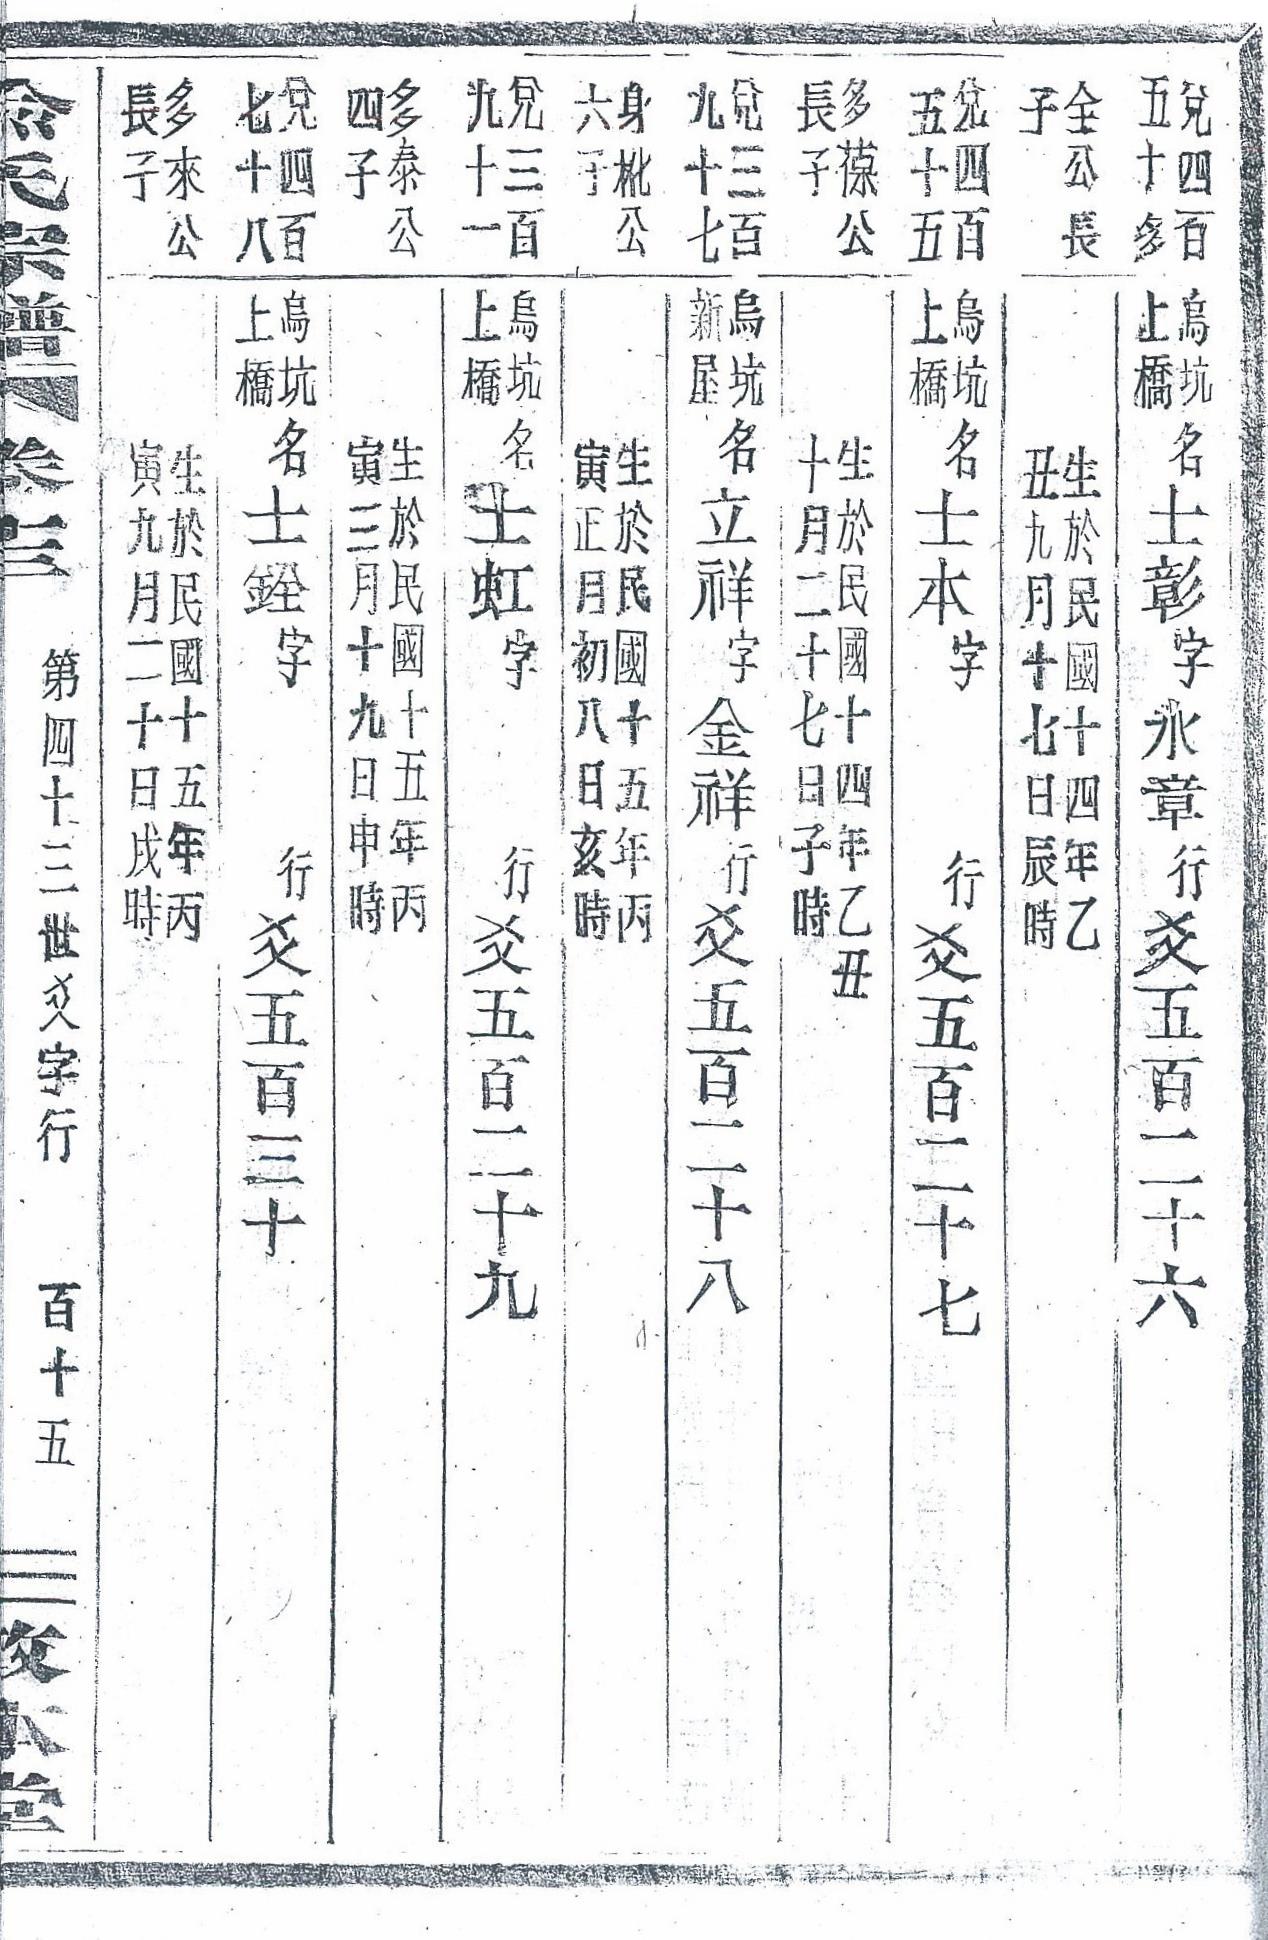 兌四百
五十多
全公長
子
烏坑
上橋
名士彰字永章行爻五百二十六
生於民國十四年乙
丑九月十七日辰時
兌四百
五十五
多葆公
長子
烏坑
上橋
名士本字 行爻五百二十七
生於民國十四年乙丑
十月二十七日子時
兌三百
九十七
身枇公
六子
烏坑
新屋
名立祥字金祥行爻五百二十八
生於民國十五年丙
寅正月初八日亥時
兌三百
九十一
多泰公
四子
烏坑
上橋
名士虹字 行爻五百二十九
生於民國十五年丙
寅三月十九日申時
兌四百
七十八
多來公
長子
烏坑
上橋
名士銓字 行爻五百三十
生於民國十五年丙
寅九月二十日戌時
氏宗譜 卷三
第四十三世爻字行 百十五
本堂